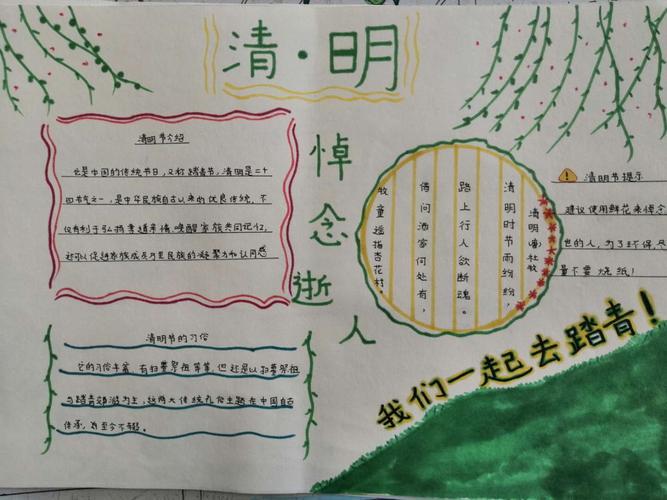 清·明
清明节介绍
它是中国的传统节日，又称踏青节，清明是二十
四节气之一，是中华民族自古以来的优良传统，不
仅有利于弘扬孝道亲情，唤醒家族共同记忆，
还可以促进家族成员乃至民族的凝聚力和认同感
悼念逝人
清明(唐)杜牧
清明时节雨纷纷，
路上行人欲断魂。
借问酒家何处有，
牧童遥指杏花村。
清明节提示
建议使用鲜花来悼念
世的人，为了环保，尽
量不要烧纸！
清明节的习俗
它的习俗丰富，有扫墓祭祖等等，但还是以扫墓祭祖
与踏青郊游为主，这两大传统礼俗主题在中国自古
传承，至今不辍。
我们一起去踏青！